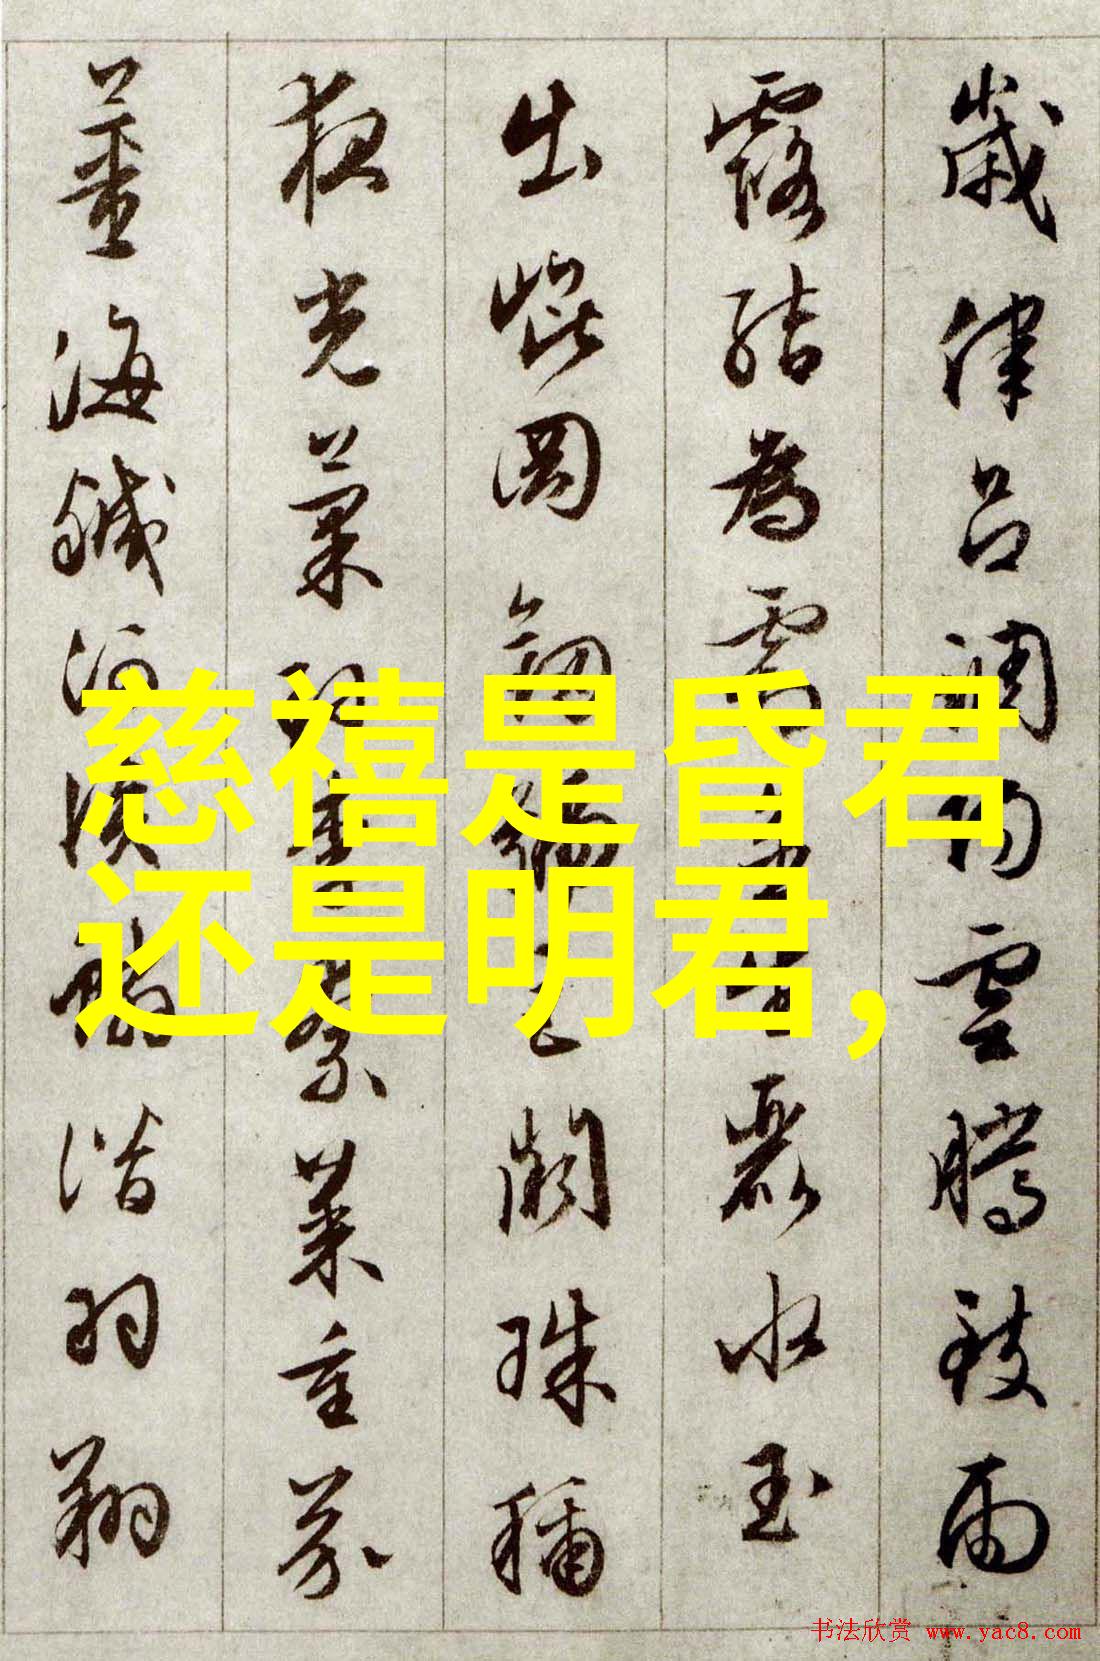 歲律呂調陽雲騰致雨
露結為霜金生麗水玉
出崐岡劍號巨闕珠稱
夜光菓珍李柰菜重芥
薑海鹹河淡鱗潛羽翔
慈禧是昏君
还是明君,
书法欣赏 www.yac8.com